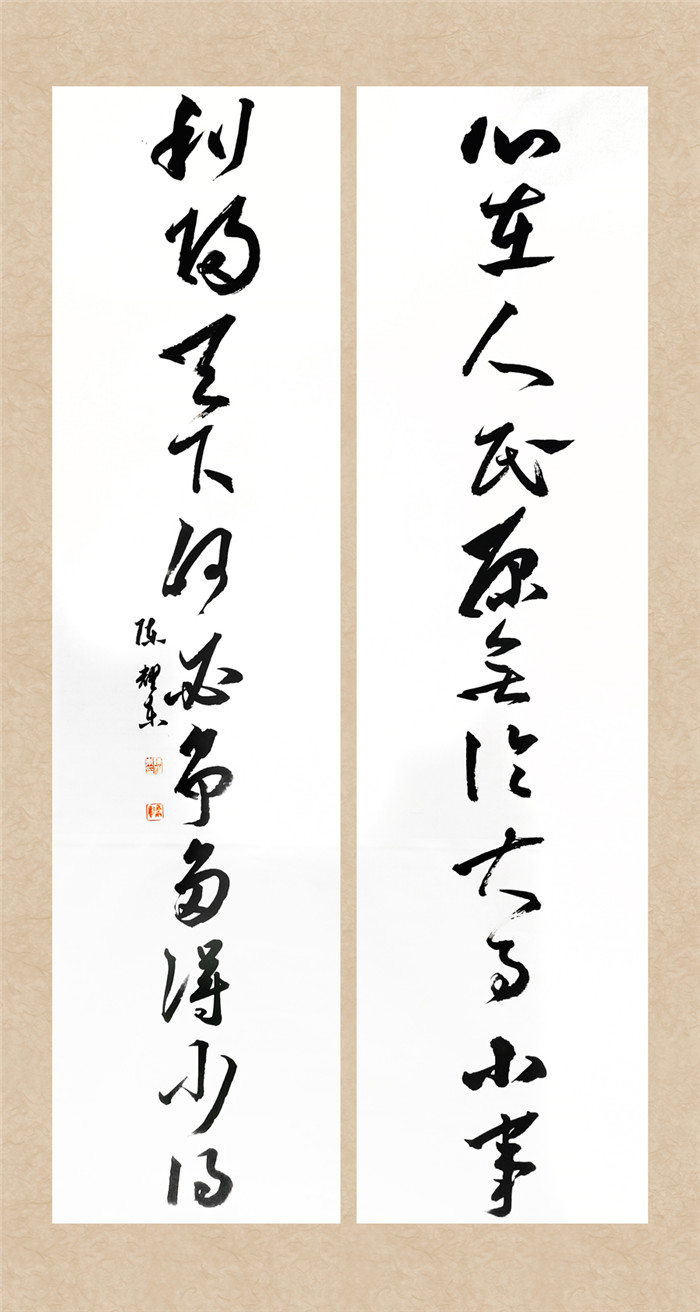 心在人民原无论大事小事
利归天下何必争多得少得
陈耀东